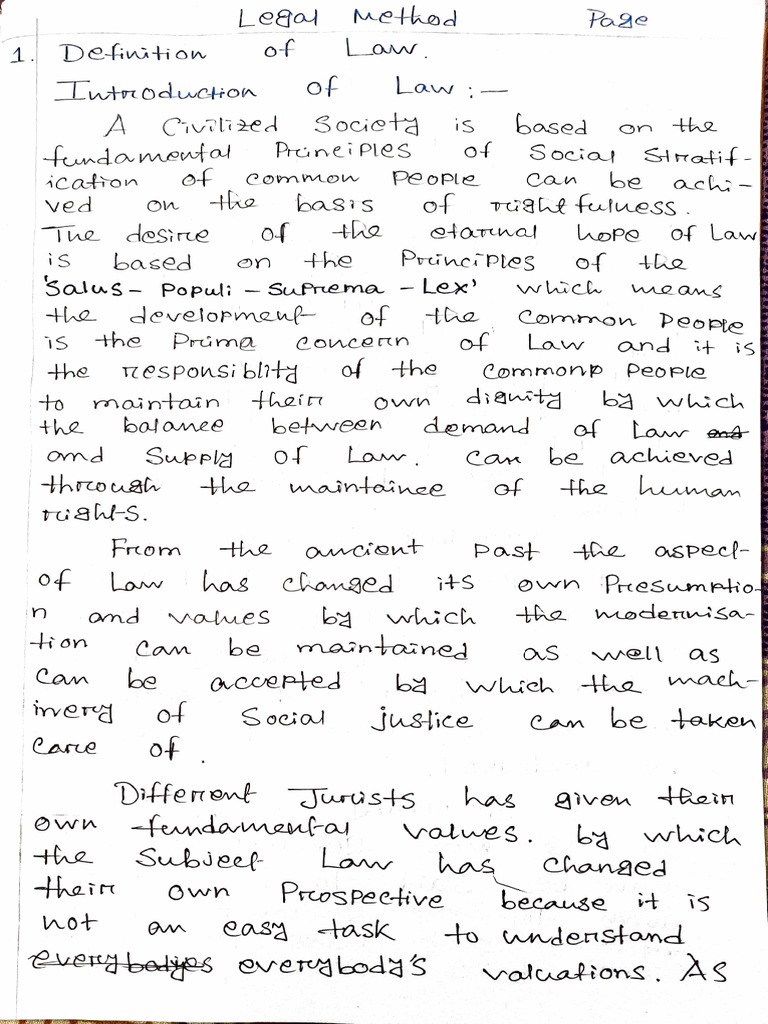 Legal Method Page
1. Definition of Law.
Introduction of Law :—
A Civilized Society is based on the
fundamental Principles of Social Stratif-
ication of common People can be achi-
ved on the basis of rightfulness.
The desire of the etarnal hope of Law
is based on the Principles of the
'Salus - Populi - Suprema - Lex' which means
the development of the Common People
is the Prima concern of Law and it is
the responsiblity of the common People
to maintain their own dignity by which
the balance between demand of Law and
and Supply of Law. can be achieved
through the maintaince of the human
rights.
From the ancient Past the aspect
of Law has changed its own Presumptio-
n and values by which the modernisa-
tion can be maintained as well as
can be accepted by which the mach-
inery of Social justice can be taken
Care of.
Different Jurists has given their
own fundamental values. by which
the Subject Law has changed
their own Prospective because it is
not an easy task to understand
everybodyes everybody's valuations. As